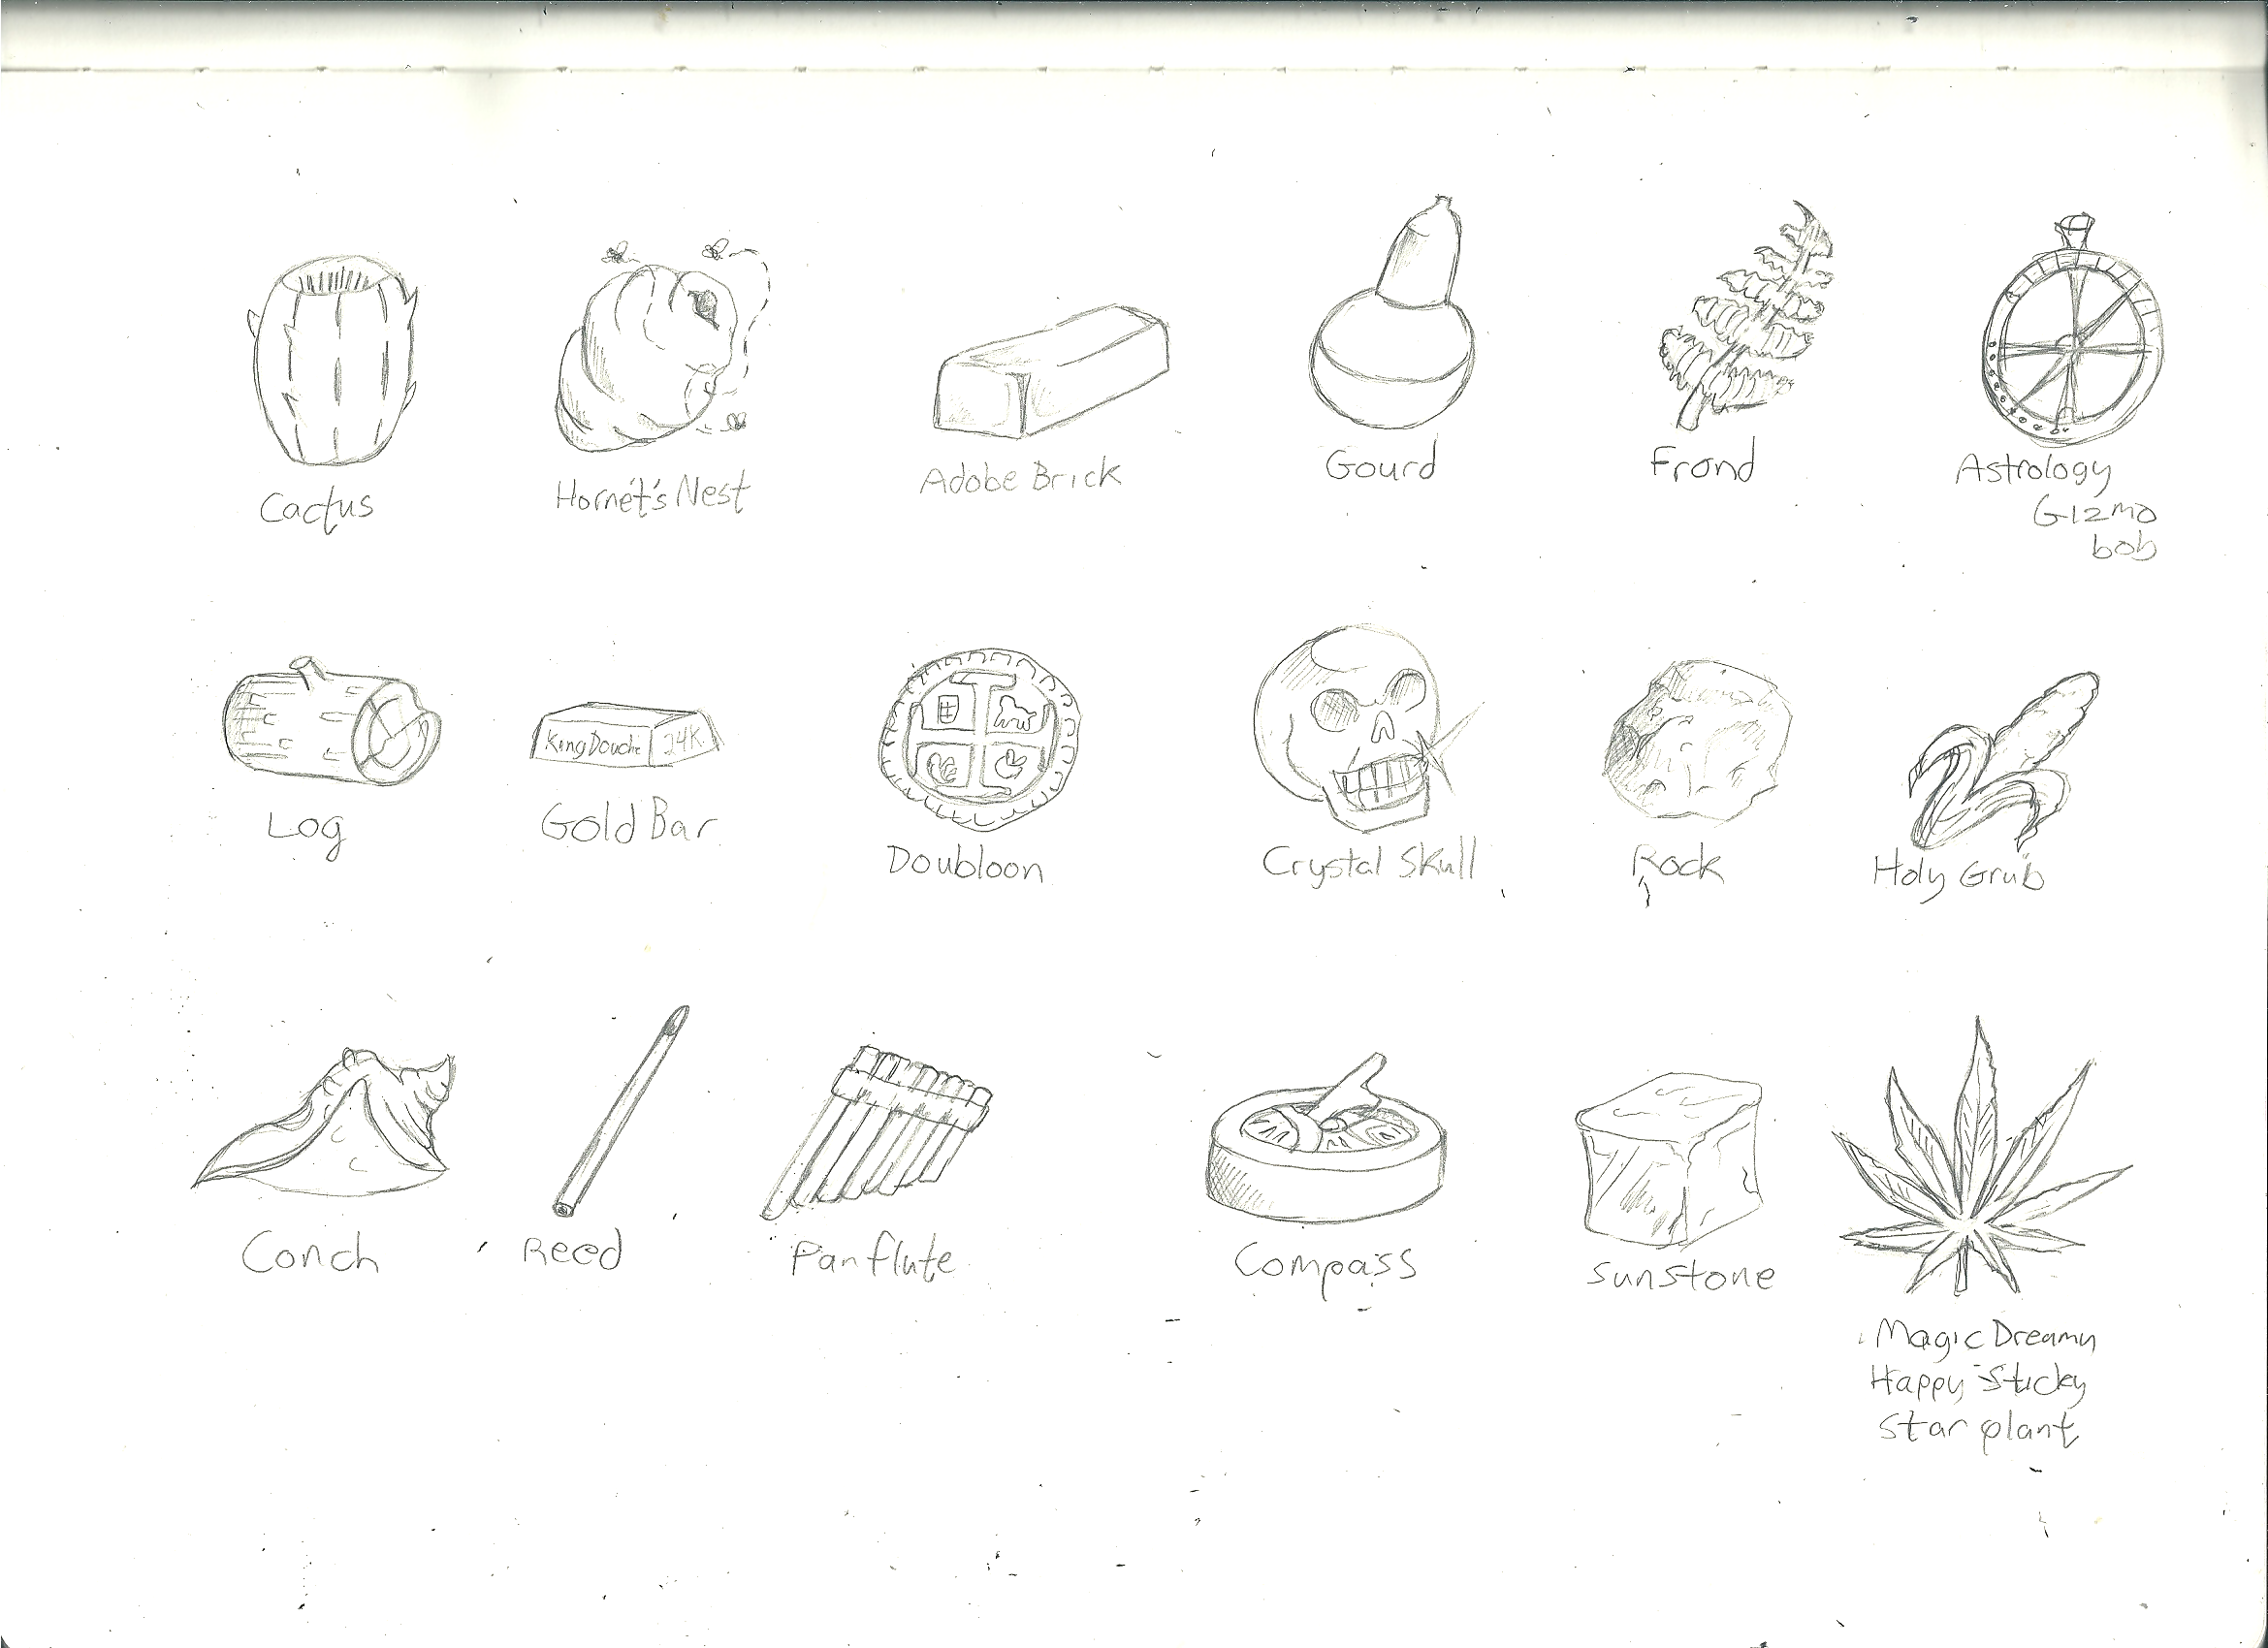 Cactus
Hornet's Nest
Adobe Brick
Gourd
Frond
Astrology
Gizmo
bob
Log
King Douche 24K
Gold Bar
Doubloon
Crystal Skull
Rock
Holy Grub
Conch
Reed
Panflute
Compass
Sunstone
Magic Dreamy
Happy Sticky
Star plant